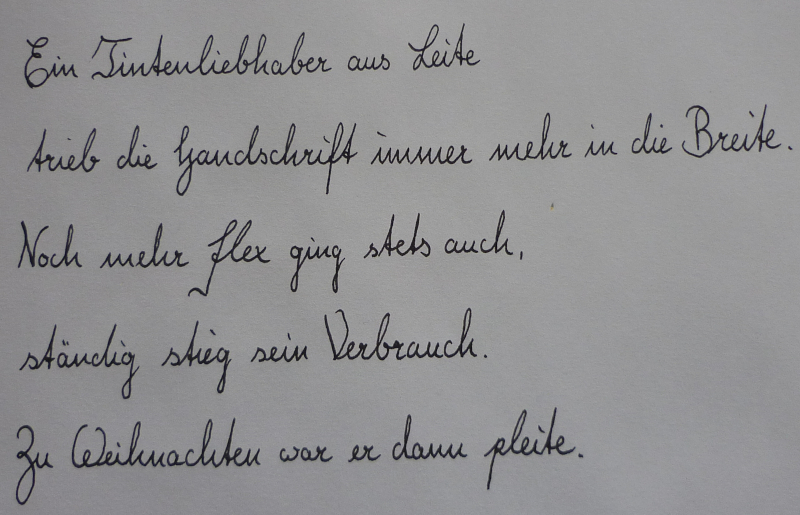 Ein Tintenliebhaber aus Leite
trieb die Handschrift immer mehr in die Breite.
Noch mehr flex ging stets auch,
ständig stieg sein Verbrauch.
Zu Weihnachten war er dann pleite.